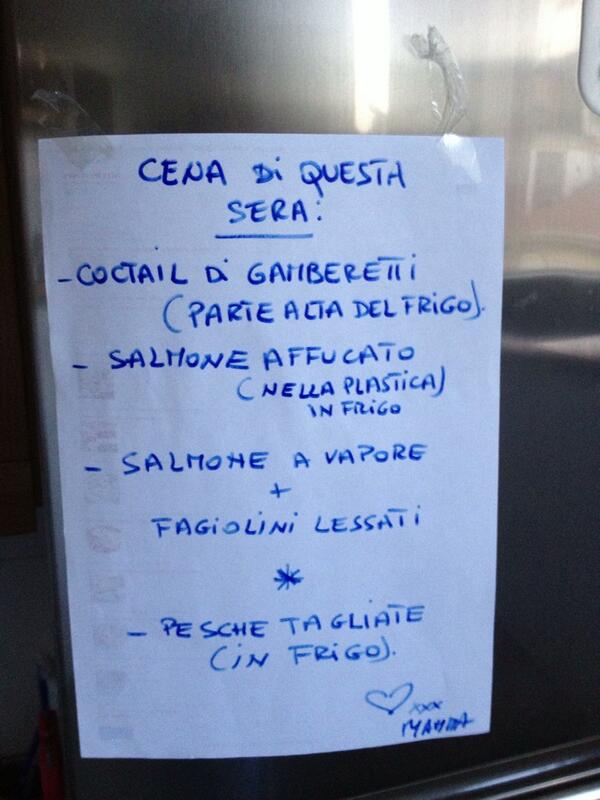 CENA Di QUESTA
SERA:
- COCTAIL Di GAMBERETTI
(PARTE ALTA DEL FRIGO).
- SALMONE AFFUCATO
(NELLA PLASTICA)
IN FRIGO
- SALMONE A VAPORE
+
FAGIOLINI LESSATI
*
- PESCHE TAGLIATE
(IN FRIGO).
♡ xxx
MAMMA